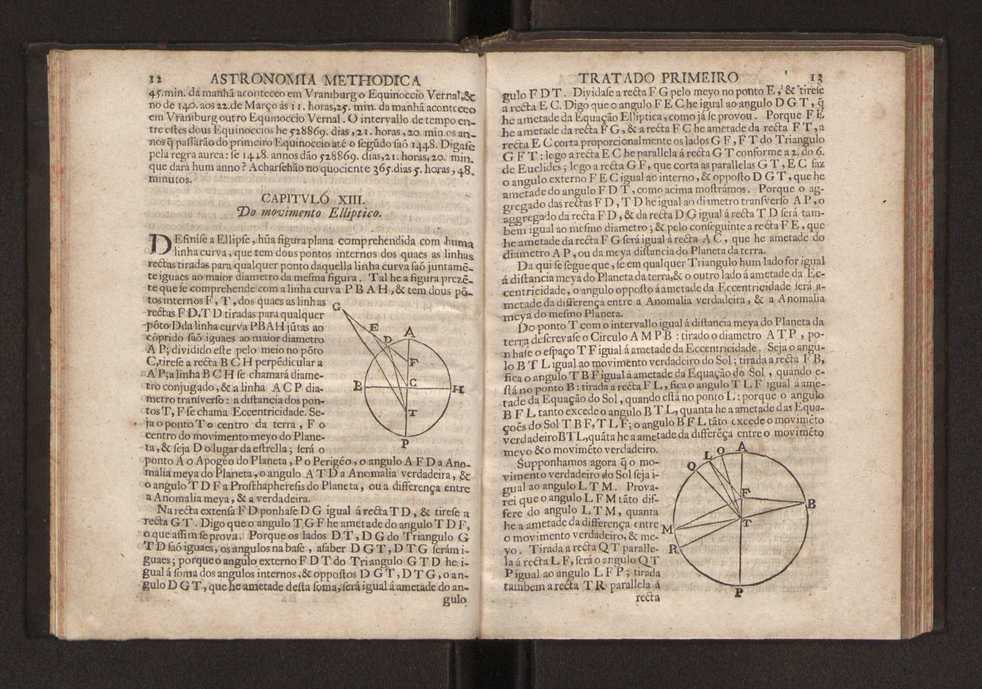 12 ASTRONOMIA METHODICA
45. min. da manhã aconteceo em Vraniburgo Equinoccio Vernal, &
no de 140. aos 22. de Março ás 11. horas, 25. min. da manhã aconteceo
em Vraniburg outro Equinoccio Vernal. O intervallo de tempo en-
tre estes dous Equinoccios he 528869. dias, 21. horas, 20. min. os an-
nos q̃ passarão do primeiro Equinoccio até o segũdo saõ 1448. Digase
pela regra aurea: se 1448. annos dão 528869. dias, 21. horas, 20. min.
que dará hum anno? Acharsehão no quociente 365. dias 5. horas, 48.
minutos.
CAPITVLÓ XIII.
Do movimento Elliptico.
DEfinise a Ellipse, hũa figura plana comprehendida com huma
linha curva, que tem dous pontos internos dos quaes as linhas
rectas tiradas para qualquer ponto daquella linha curva saõ juntamẽ-
te iguaes ao maior diametro da mesma figura. Tal he a figura prezẽ-
te que se comprehende com a linha curva PBAH, & tem dous põ-
tos internos F, T, dos quaes as linhas
rectas FD, TD tiradas para qualquer
põto D da linha curva PBAH jũtas ao
cõprido saõ iguaes ao maior diametro
AP; dividido este pelo meio no põto
C, tirese a recta BCH perpẽdicular a
AP; a linha BCH se chamará diame-
tro conjugado, & a linha ACP dia-
metro transverso: a distancia dos pon-
tos T, F se chama Eccentricidade. Se-
ja o ponto T o centro da terra, F o
centro do movimento meyo do Plane-
ta, & seja D o lugar da estrella; será o
ponto A o Apogeo do Planeta, P o Perigéo, o angulo AFD a Ano-
malia meya do Planeta, o angulo ATD a Anomalia verdadeira, &
o angulo TDF a Prosthapheresis do Planeta, ou a differença entre
a Anomalia meya, & a verdadeira.
Na recta extensa FD ponhase DG igual á recta TD, & tirese a
recta GT. Digo que o angulo TGF he ametade do angulo TDF,
o que assim se prova. Porque os lados DT, DG do Triangulo G
TD saõ iguaes, os angulos na base, asaber DGT, DTG serám i-
guaes; porque o angulo externo FDT do Triangulo GTD he i-
gual á soma dos angulos internos, & oppostos DGT, DTG, o an-
gulo DGT, que he ametade desta soma, será igual á ametade do an-
gulo
G
E
D
A
F
B
C
H
T
P
TRATADO PRIMEIRO 13
gulo FDT. Dividase a recta FG pelo meyo no ponto E, & tirese
a recta EC. Digo que o angulo FEC he igual ao angulo DGT, q̃
he ametade da Equação Elliptica, como já se provou. Porque FE
he ametade da recta FG, & a recta FC he ametade da recta FT, a
recta EC corta proporcionalmente os lados GF, FT do Triangulo
GFT: logo a recta EC he parallela á recta GT conforme a 2. do 6.
de Euclides; logo a recta GF, que corta as parallelas GT, EC faz
o angulo externo FEC igual ao interno, & opposto DGT, que he
ametade do angulo FDT, como acima mostrámos. Porque o ag-
gregado das rectas FD, TD he igual ao diametro transverso AP, o
aggregado da recta FD, & da recta DG igual á recta TD será tam-
bem igual ao mesmo diametro; & pelo conseguinte a recta FE, que
he ametade da recta FG será igual á recta AC, que he ametade do
diametro AP, ou da meya distancia do Planeta da terra.
Da qui se segue que, se em qualquer Triangulo hum lado for igual
á distancia meya do Planeta da terra, & o outro lado á ametade da Ec-
centricidade, o angulo opposto á ametade da Eccentricidade será a-
metade da differença entre a Anomalia verdadeira, & a Anomalia
meya do mesmo Planeta.
Do ponto T com o intervallo igual á distancia meya do Planeta da
terra descrevase o Circulo AMPB: tirado o diametro ATP, po-
nhase o espaço TF igual á ametade da Eccentricidade. Seja o angu-
lo BTL igual ao movimento verdadeiro do Sol; tirada a recta FB,
fica o angulo TBF igual á ametade da Equação do Sol, quando e-
stá no ponto B: tirada a recta FL, fica o angulo TLF igual á ame-
tade da Equação do Sol, quando está no ponto L: porque o angulo
BFL tanto excede o angulo BTL, quanta he a metade das Equa-
çoẽs do Sol TBF, TLF; o angulo BFL tãto excede o movimẽto
verdadeiro BTL, quãta he a ametade da differẽça entre o movimẽto
meyo & o movimẽto verdadeiro.
Supponhamos agora q̃ o mo-
vimento verdadeiro do Sol seja i-
gual ao angulo LTM. Prova-
rei que o angulo LFM tãto dif-
fere do angulo LTM, quanta
he a ametade da differença entre
o movimento verdadeiro, & me-
yo. Tirada a recta QT paralle-
la á recta LF, será o angulo QT
P igual ao angulo LFP; tirada
tambem a recta TR parallela á
recta
Q
L
O
A
F
B
M
T
R
P